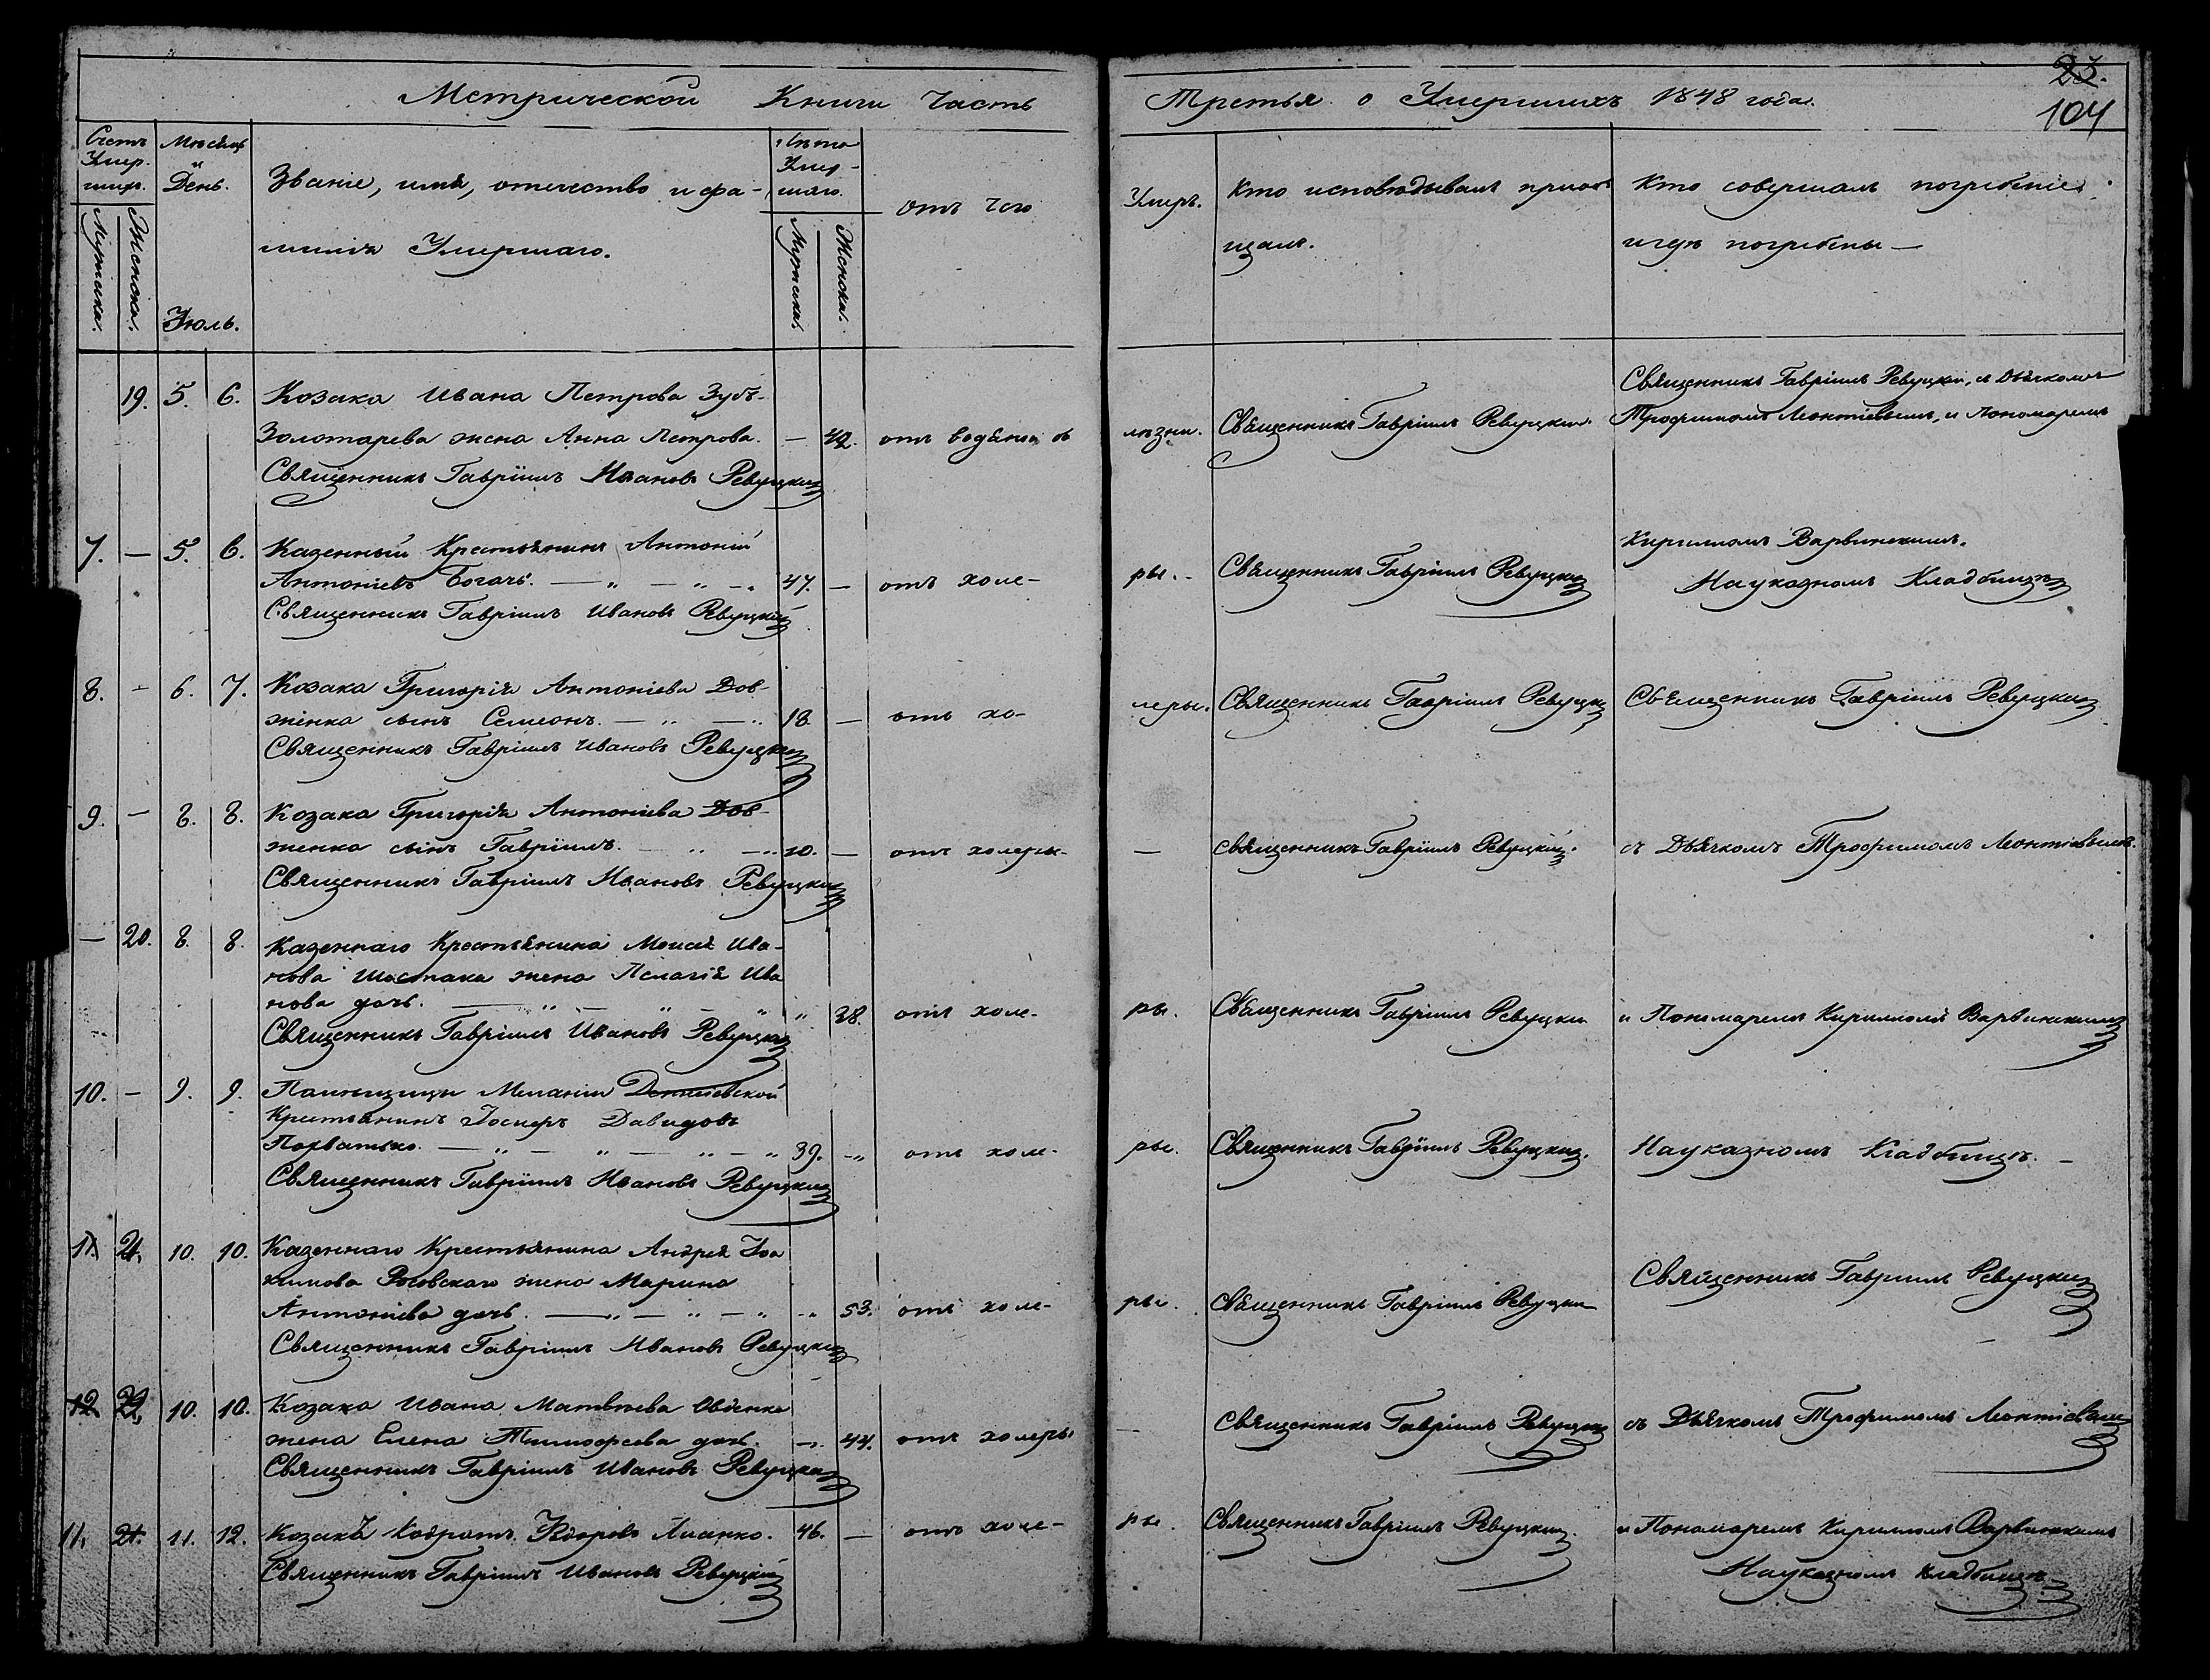 Метрической Книги Часть
Третья о Умершихъ 1848 года.
23.
104
Счетъ Умер-шихъ.
Мѣсяцъ и День.
Званіе, имя, отечество и фа-
милія Умершаго.
Лѣта Умер-шаго.
отъ чего
Умеръ.
Кто исповѣдывалъ и приоб
щалъ.
Кто совершалъ погребеніе
и гдѣ погребены —
Мужска.
Женска.
Июль.
Мужска.
Женска.
19. 5. 6. Козака Ивана Петрова Зубъ-
Золотарева жена Анна Петрова. — 42. отъ водяной бо
лѣзни. Священникъ Гавріилъ Ревуцкій.
Священникъ Гавріилъ Ревуцкій, съ Дьячкомъ
Трофимомъ Леонтіевымъ, и Пономаремъ
Священникъ Гавріилъ Ивановъ Ревуцкій
7. — 5. 6. Казенный Крестьянинъ Антоній
Антоніевъ Богачь. — „ — „ — „ 47. — отъ холе-
ры. - Священникъ Гавріилъ Ревуцкій
Кирилломъ Варвинскимъ.
На указномъ Кладбищѣ
Священникъ Гавріилъ Ивановъ Ревуцкій
8. - 6. 7. Козака Григорія Антоніева Дов-
женка сынъ Семеонъ. — „ — „ 18. — отъ хо-
леры. Священникъ Гавріилъ Ревуцкій Священникъ Гавріилъ Ревуцкій
Священникъ Гавріилъ Ивановъ Ревуцкій
9. — 8. 8. Козака Григорія Антоніева Дов-
женка сынъ Гавріилъ. — „ — „ 10. — отъ холеры
— Священникъ Гавріилъ Ревуцкій. съ Дьячкомъ Трофимомъ Леонтіевымъ.
Священникъ Гавріилъ Ивановъ Ревуцкій
— 20. 8. 8. Казеннаго Крестьянина Моисея Ива-
нова Шостака жена Пелагія Ива
нова дочь. — „ — „ — „ „ 38. отъ холе-
ры. Священникъ Гавріилъ Ревуцкій и Пономаремъ Кирилломъ Варвинскимъ
Священникъ Гавріилъ Ивановъ Ревуцкій
10. — 9. 9. Меланіи
Крестьянинъ Іосифъ Давидовъ
— „ — „ — „ — „ 39. -„ отъ холе-
ры. Священникъ Гавріилъ Ревуцкій. На указномъ Кладбищѣ. —
Священникъ Гавріилъ Ивановъ Ревуцкій
11. 21. 10. 10. Казеннаго Крестьянина Андрея Іоа
кимова Роговскаго жена Марина
Антоніева дочь. — „ — „ — „ -„ 53. отъ холе-
ры. Священникъ Гавріилъ Ревуцкій
Священникъ Гавріилъ Ревуцкій
Священникъ Гавріилъ Ивановъ Ревуцкій
12. 22. 10. 10. Козака Ивана Матвѣева Овденка
жена Елена Тимофеева дочь. -„ 44. отъ холеры
— Священникъ Гавріилъ Ревуцкій съ Дьячкомъ Трофимомъ Леонтіевымъ
Священникъ Гавріилъ Ивановъ Ревуцкій
11. 21. 11. 12. Козакъ Кодратъ 46. — отъ холе-
ры. Священникъ Гавріилъ Ревуцкій. и Пономаремъ Кирилломъ Варвинскимъ
На указномъ кладбищѣ
Священникъ Гавріилъ Ивановъ Ревуцкій